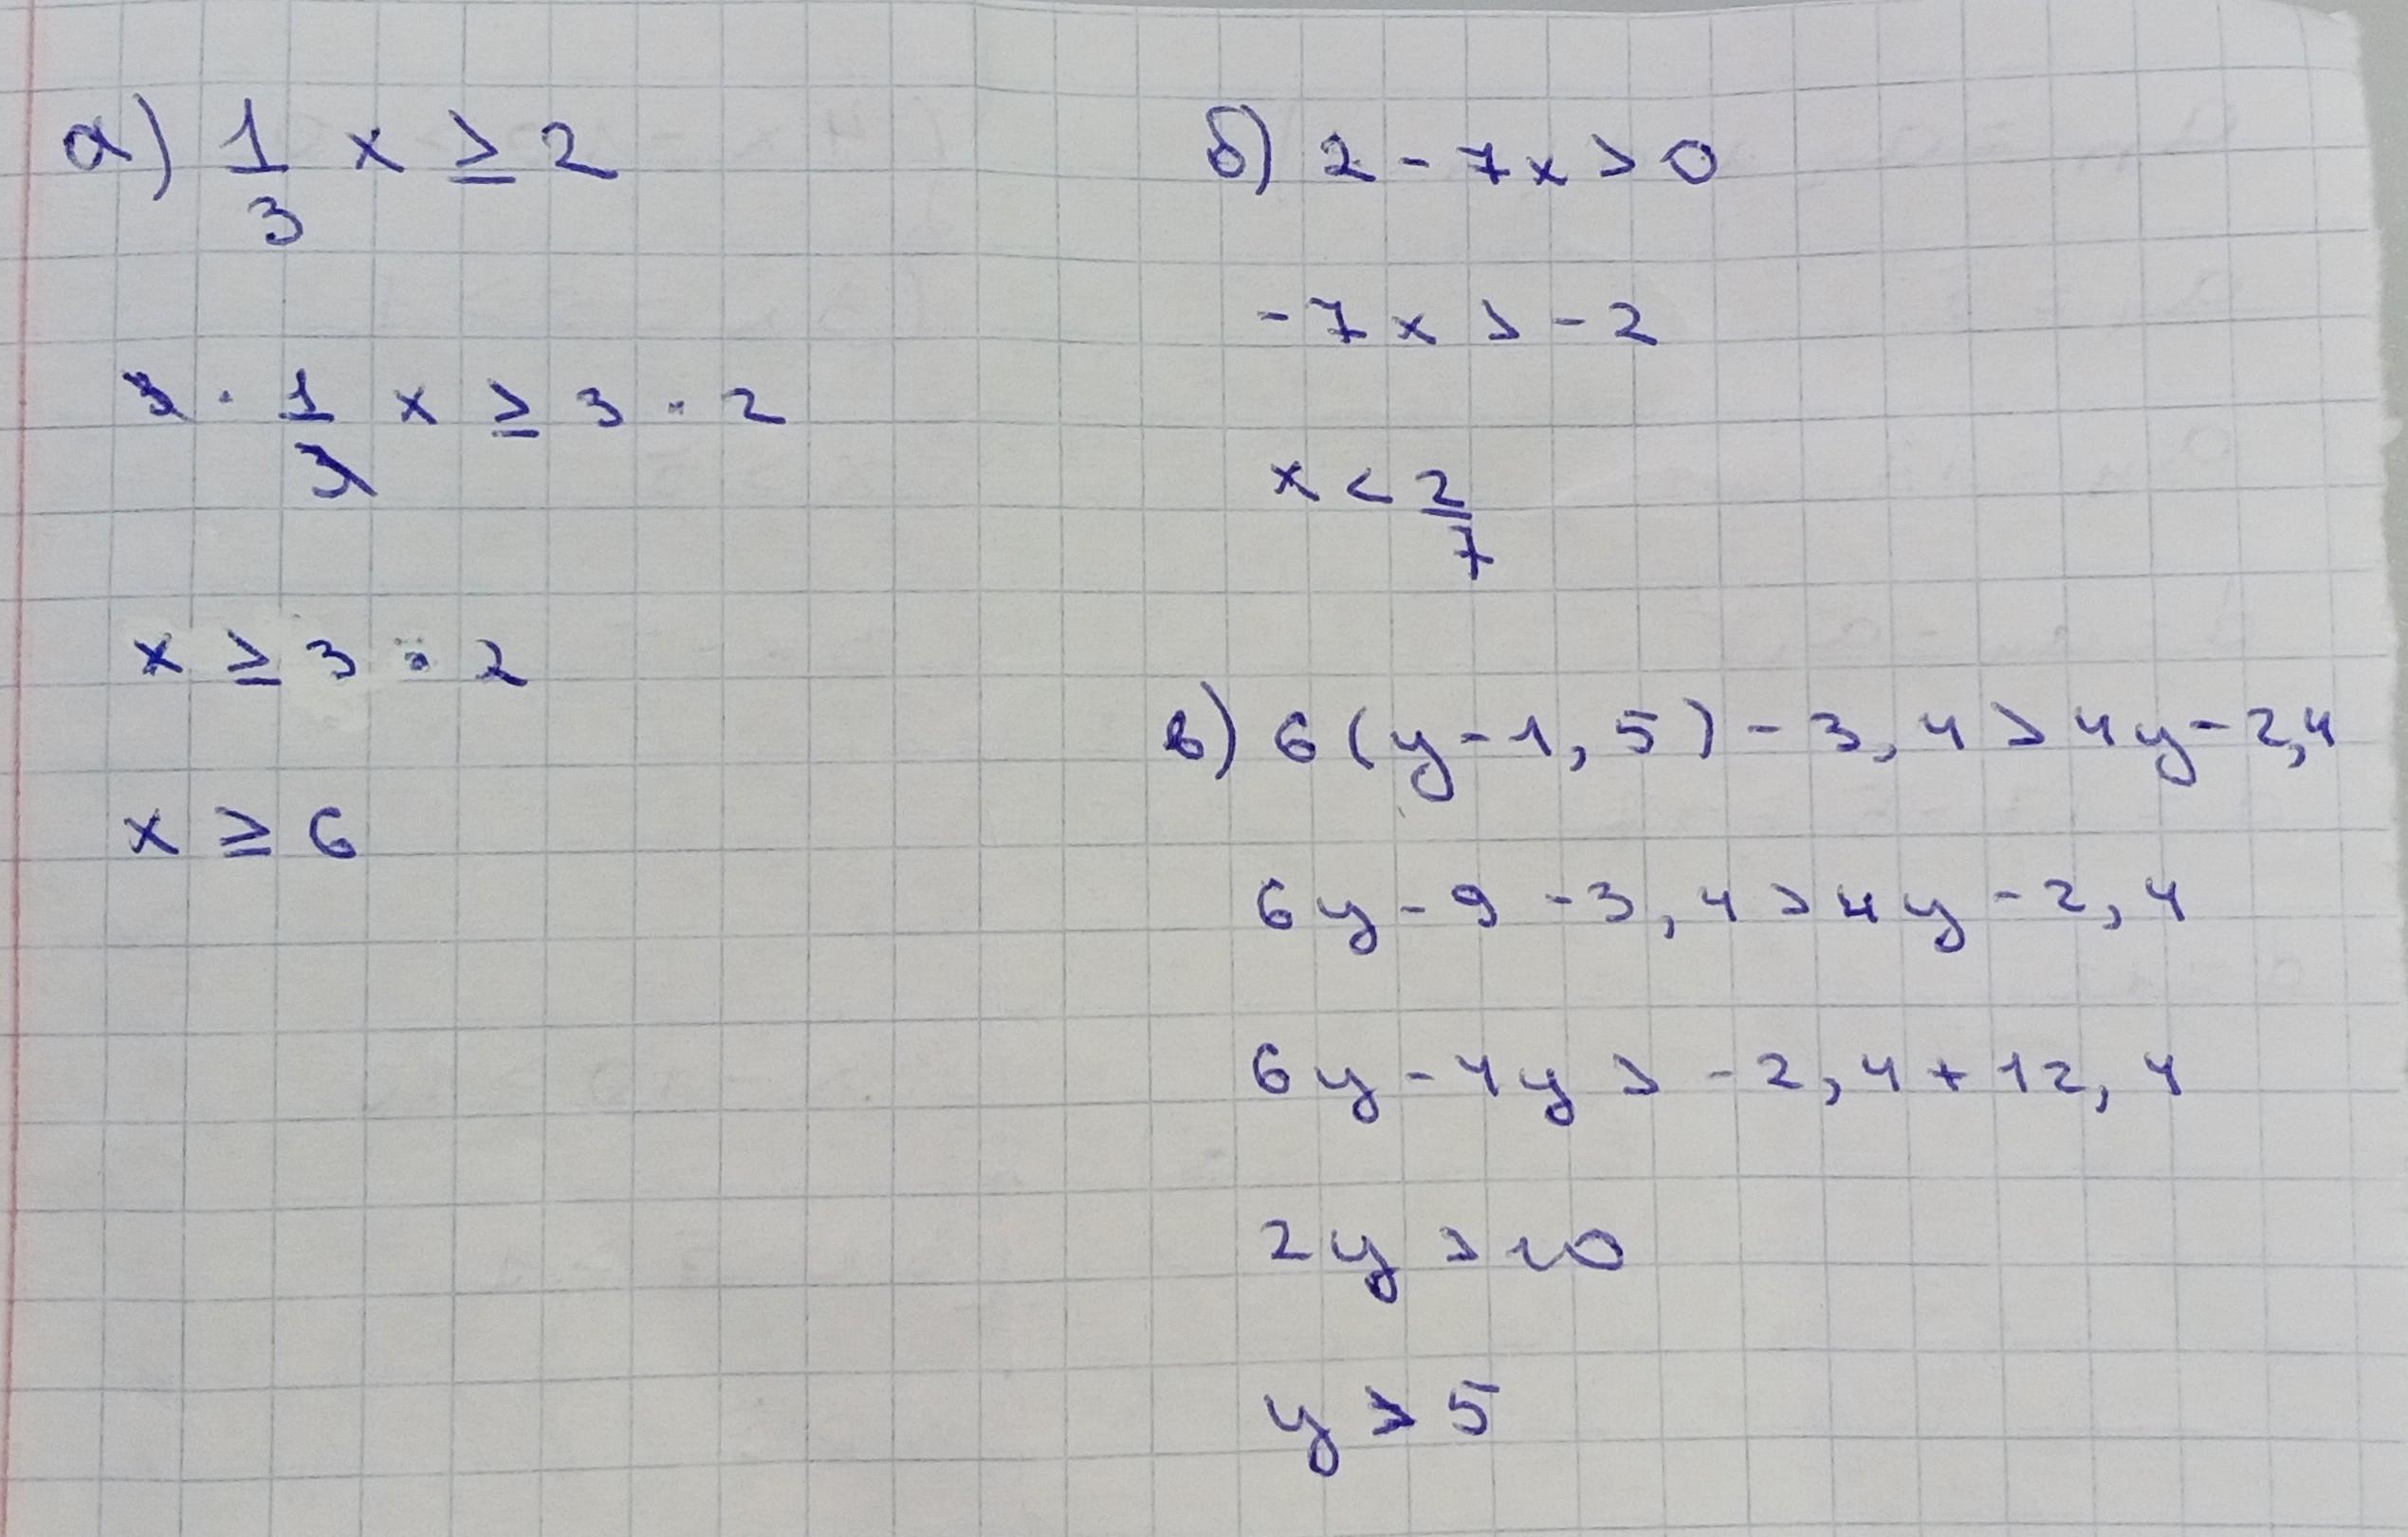 а) 1/3 x ≥ 2
3 · 1/3 x ≥ 3 · 2
x ≥ 3 · 2
x ≥ 6
б) 2 - 7x > 0
-7x > -2
x < 2/7
в) 6(y-1,5) - 3,4 > 4y - 2,4
6y - 9 - 3,4 > 4y - 2,4
6y - 4y > -2,4 + 12,4
2y > 10
y > 5